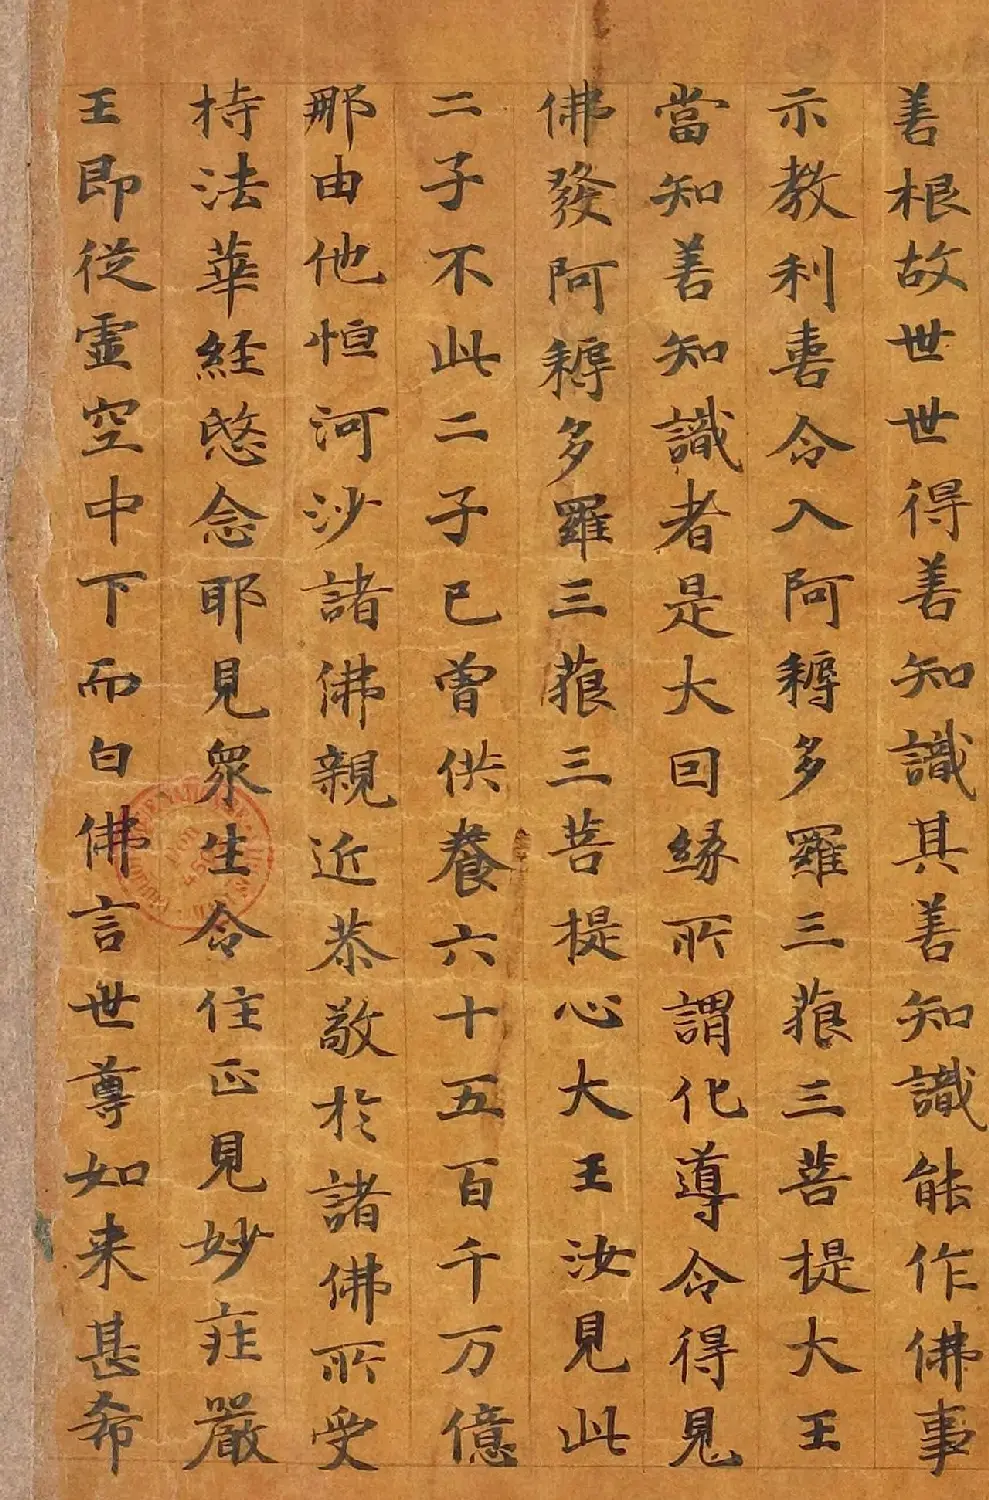 善根故世世得善知識其善知識能作佛事
示教利喜令入阿耨多羅三藐三菩提大王
當知善知識者是大因緣所謂化導令得見
佛發阿耨多羅三藐三菩提心大王汝見此
二子不此二子已曾供養六十五百千万億
那由他恒河沙諸佛親近恭敬於諸佛所受
持法華經愍念耶見眾生令住正見妙莊嚴
王即從虛空中下而白佛言世尊如来甚希